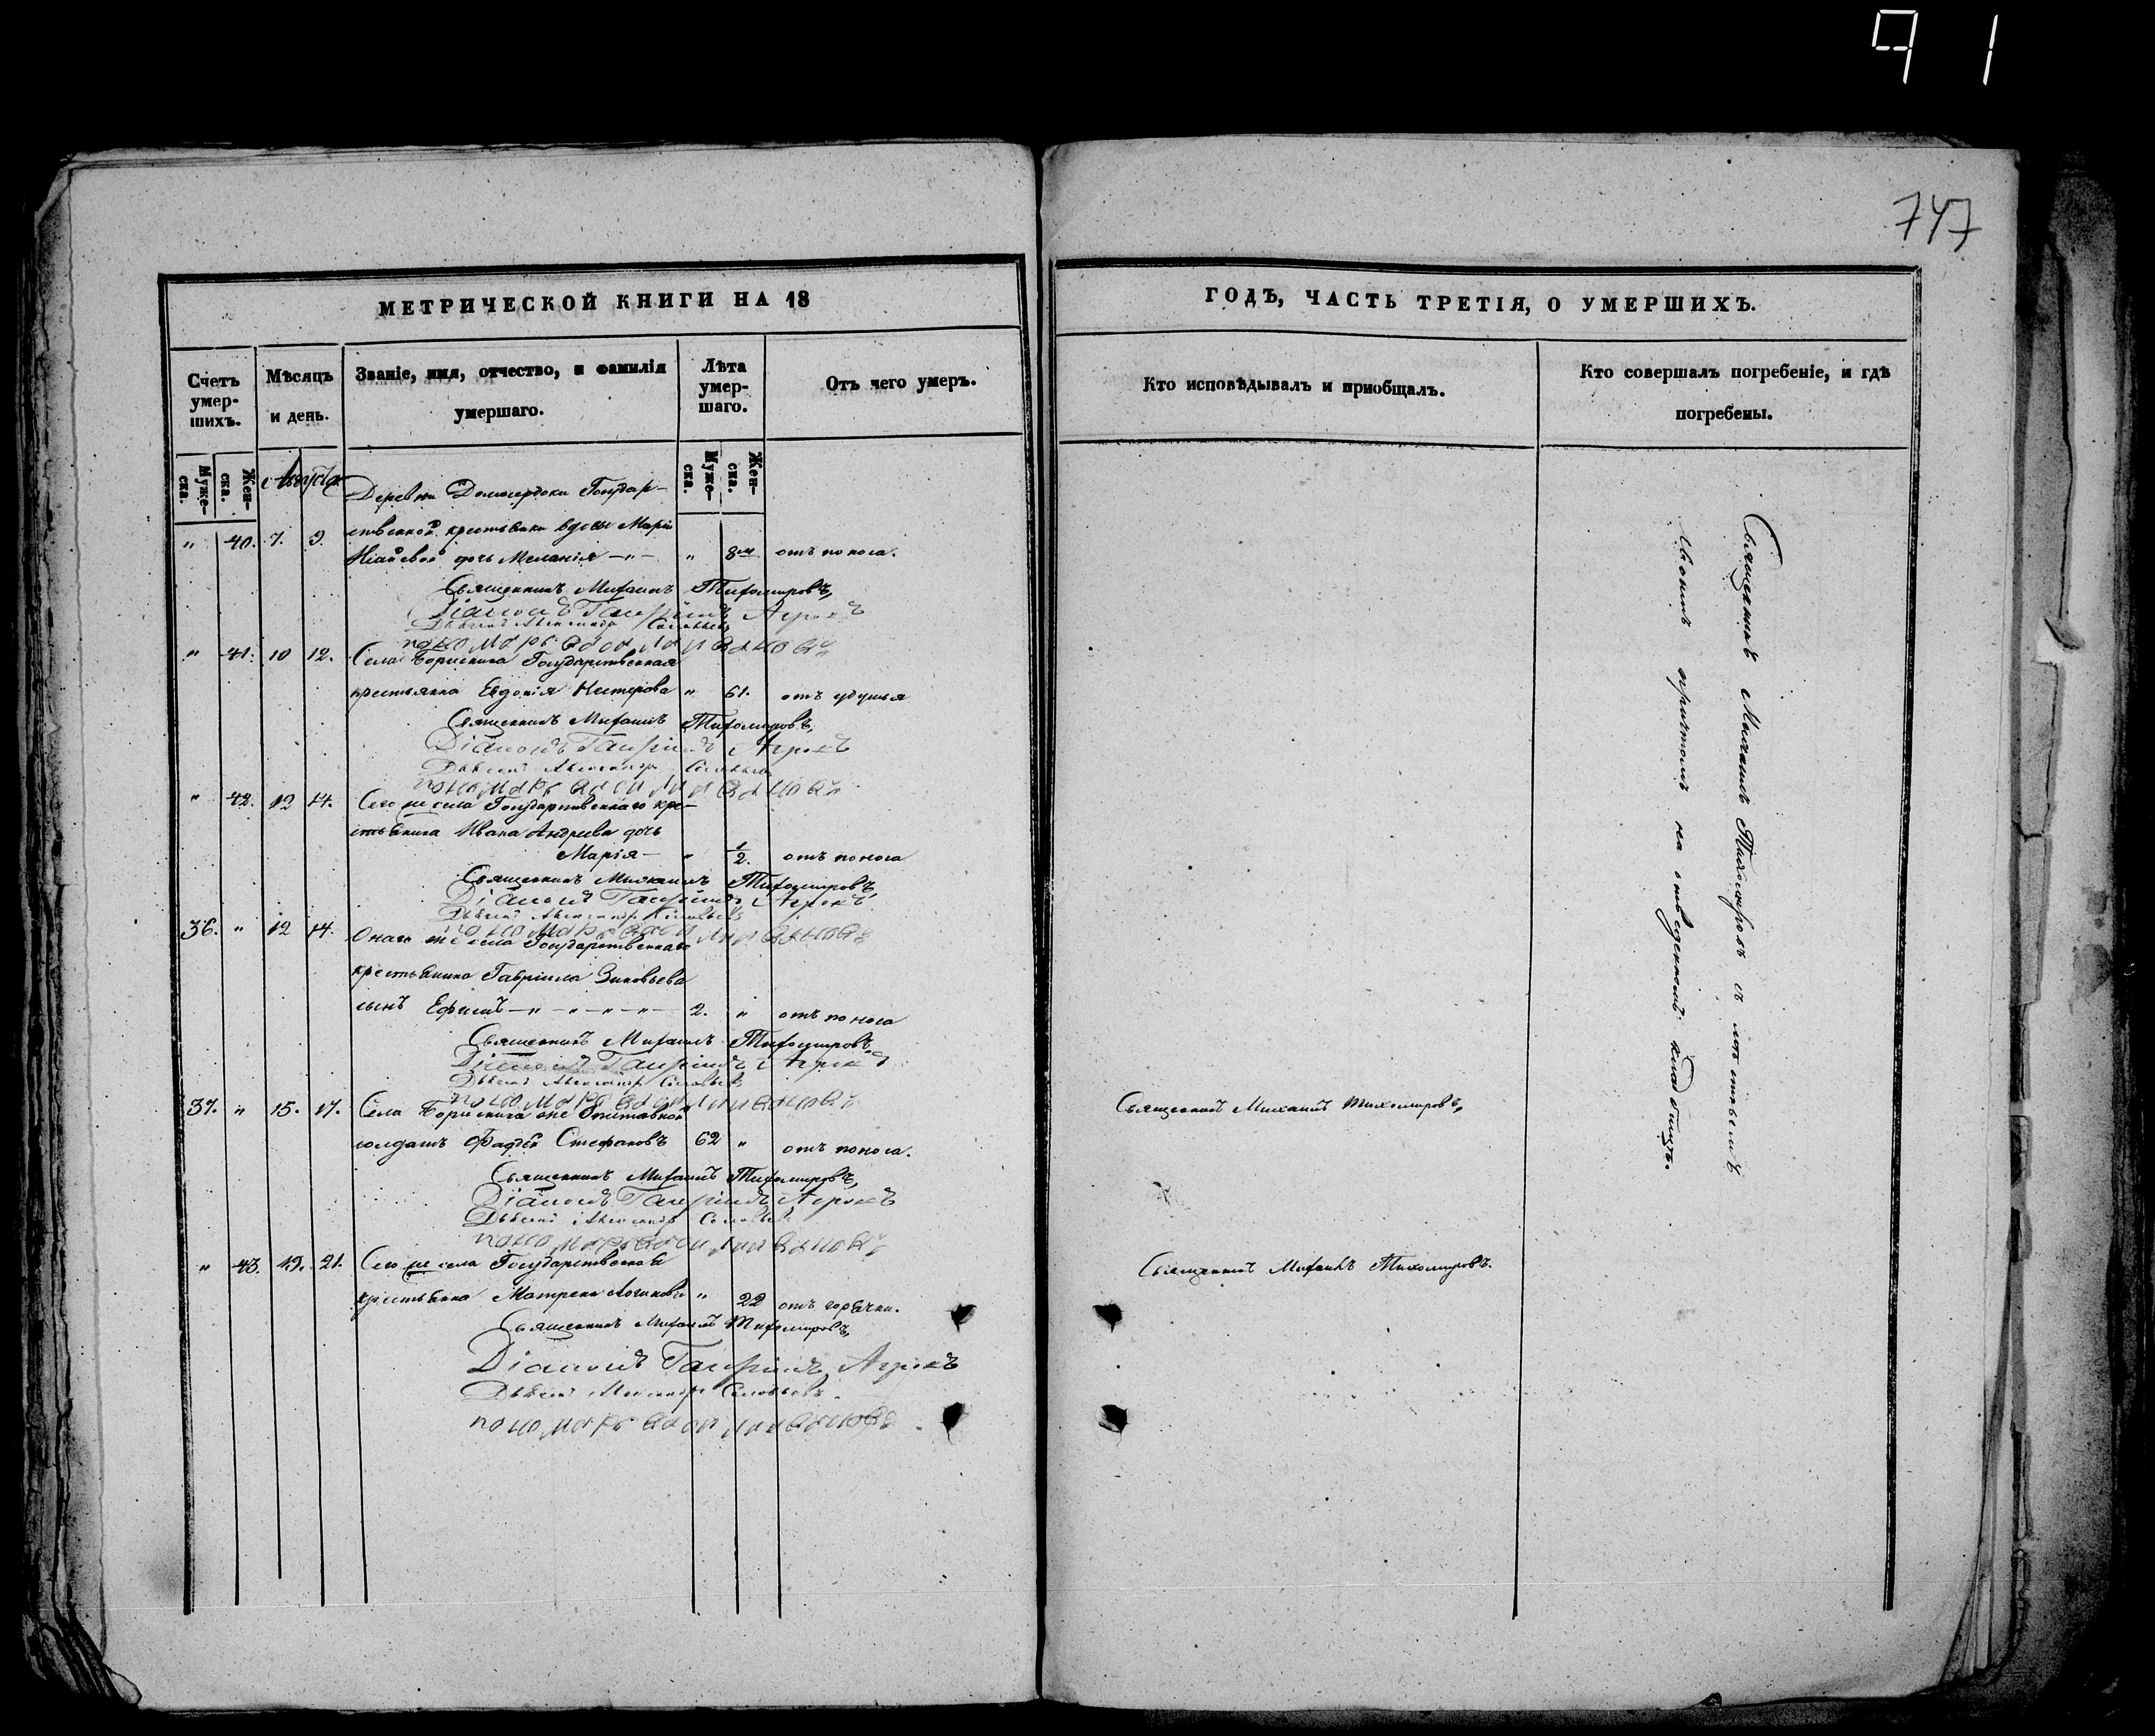 91
747
МЕТРИЧЕСКОЙ КНИГИ НА 18
Счетъ умер-шихъ.
Мѣсяцъ и день.
Званіе, имя, отчество, и фамилія умершаго.
Лѣта умер-шаго.
Отъ чего умеръ.
Муже-ска.
Жен-ска.
Муже-ска.
Жен-ска.
Августа
Деревни Государ-
" 40. 7. 9. ственной крестьянки вдовы Маріи
дочь Меланія —"— " 8 м. отъ поноса.
Священникъ Михаилъ Тихомировъ,
Діаконъ Гавріилъ
Дьячекъ Александръ Соловьевъ
пономарь
" 41. 10 12. Села Борискина Государственная
крестьянка Евдокія Нестерова " 61. отъ удушья
Священникъ Михаилъ Тихомировъ,
Діаконъ Гавріилъ
Дьячекъ Александръ Соловьевъ
пономарь
" 42. 12 14. Сего же села Государственнаго кре-
стьянина Ивана Андреева дочь
Марія — " 1/2. отъ поноса
Священникъ Михаилъ Тихомировъ,
Діаконъ Гавріилъ
Дьячекъ Александръ Соловьевъ
пономарь
36. " 12 14. Онаго же села Государственнаго
крестьянина Гавріила Зиновьева
сынъ Ефимъ —"—"—"—"— 2. " отъ поноса
Священникъ Михаилъ Тихомировъ,
Діаконъ Гавріилъ
Дьячекъ Александръ Соловьевъ
пономарь
37. " 15. 17. Села Борискина же Отставной
солдатъ Фадѣй Стефановъ 62 " отъ поноса.
Священникъ Михаилъ Тихомировъ,
Діаконъ Гавріилъ
Дьячекъ Александръ Соловьевъ
пономарь
" 43. 19. 21. Сего же села Государственная
крестьянка Матрена Логинова " 22 отъ горячки.
Священникъ Михаилъ Тихомировъ,
Діаконъ Гавріилъ
Дьячекъ Александръ Соловьевъ
пономарь
ГОДЪ, ЧАСТЬ ТРЕТІЯ, О УМЕРШИХЪ.
Кто исповѣдывалъ и приобщалъ.
Кто совершалъ погребеніе, и гдѣ погребены.
Священникъ Михаилъ Тихомировъ,
Священникъ Михаилъ Тихомировъ.
Священникъ Михаилъ Тихомировъ съ
причтомъ на отведенномъ кладбищѣ.